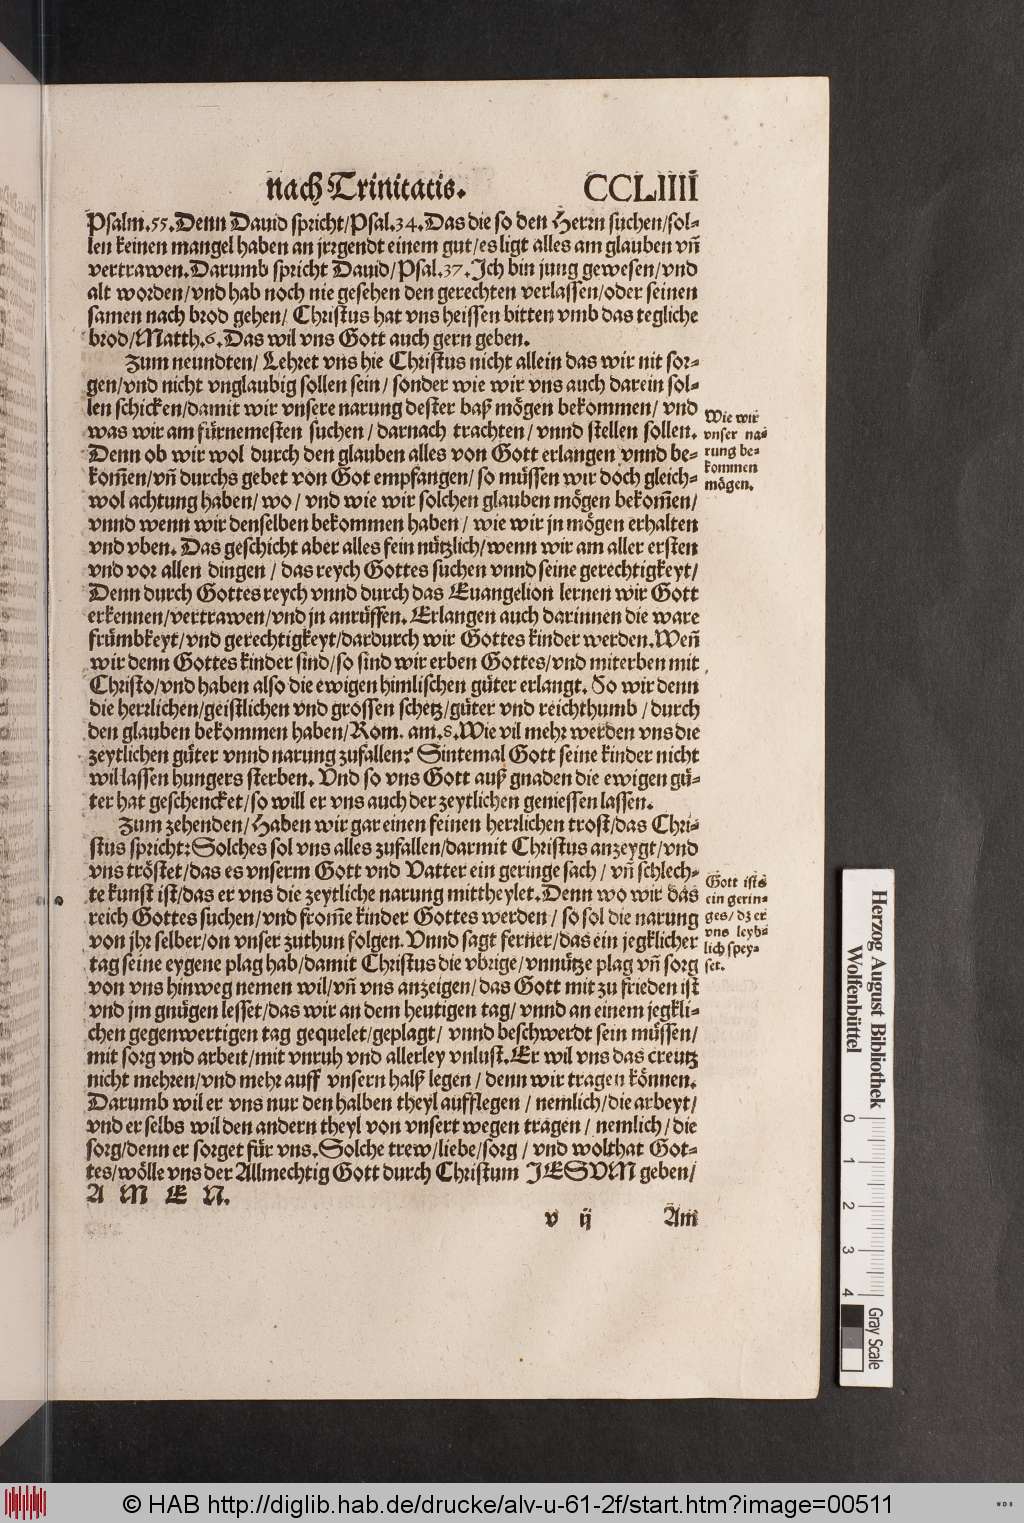 nach Trinitatis. CCLIIII
Psalm.55. Denn Dauid spricht/Psal.34. Das die so den Herrn suchen/sol-
len keinen mangel haben an jrrgendt einem gut/es ligt alles am glauben vñ
vertrawen. Darumb spricht Dauid/Psal.37. Ich bin jung gewesen/vnd
alt worden/vnd hab noch nie gesehen den gerechten verlassen/oder seinen
samen nach brod gehen/ Christus hat vns heissen bitten vmb das tegliche
brod/Matth.6. Das wil vns Gott auch gern geben.
Zum neundten/ Lehret vns hie Christus nicht allein das wir nit sor-
gen/vnd nicht vnglaubig sollen sein/ sonder wie wir vns auch darein sol-
len schicken/damit wir vnsere narung dester baß mögen bekommen/ vnd
was wir am fürnemesten suchen/ darnach trachten/ vnnd stellen sollen.
Denn ob wir wol durch den glauben alles von Gott erlangen vnnd be-
kom̃en/vñ durchs gebet von Got empfangen/ so müssen wir doch gleich-
wol achtung haben/ wo/ vnd wie wir solchen glauben mögen bekom̃en/
vnnd wenn wir denselben bekommen haben/ wie wir jn mögen erhalten
vnd vben. Das geschicht aber alles fein nützlich/wenn wir am aller ersten
vnd vor allen dingen/ das reych Gottes suchen vnnd seine gerechtigkeyt/
Denn durch Gottes reych vnnd durch das Euangelion lernen wir Gott
erkennen/vertrawen/vnd jn anrüffen. Erlangen auch darinnen die ware
frümbkeyt/vnd gerechtigkeyt/dardurch wir Gottes kinder werden. Weñ
wir denn Gottes kinder sind/so sind wir erben Gottes/vnd miterben mit
Christo/vnd haben also die ewigen himlischen güter erlangt. So wir denn
die herrlichen/geistlichen vnd grossen schetz/güter vnd reichthumb/ durch
den glauben bekommen haben/Rom. am.8. Wie vil mehr werden vns die
zeytlichen güter vnnd narung zufallen? Sintemal Gott seine kinder nicht
wil lassen hungers sterben. Vnd so vns Gott auß gnaden die ewigen gü-
ter hat geschencket/so will er vns auch der zeytlichen geniessen lassen.
Zum zehenden/ Haben wir gar einen feinen herrlichen trost/das Chri-
stus spricht: Solches sol vns alles zufallen/darmit Christus anzeygt/vnd
vns tröstet/das es vnserm Gott vnd Vatter ein geringe sach/ vñ schlech-
te kunst ist/das er vns die zeytliche narung mittheylet. Denn wo wir das
reich Gottes suchen/vnd from̃e kinder Gottes werden/ so sol die narung
von jhr selber/on vnser zuthun folgen. Vnnd sagt ferner/das ein jegklicher
tag seine eygene plag hab/damit Christus die vbrige/vnnütze plag vñ sorg
von vns hinweg nemen wil/vñ vns anzeigen/das Gott mit zu frieden ist
vnd jm gnügen lesset/das wir an dem heutigen tag/vnnd an einem jegkli-
chen gegenwertigen tag gequelet/geplagt/ vnnd beschwerdt sein müssen/
mit sorg vnd arbeit/mit vnruh vnd allerley vnlust. Er wil vns das creutz
nicht mehren/vnd mehr auff vnsern halß legen/ denn wir tragen können.
Darumb wil er vns nur den halben theyl aufflegen/ nemlich/die arbeyt/
vnd er selbs wil den andern theyl von vnsert wegen tragen/ nemlich/die
sorg/denn er sorget für vns. Solche trew/liebe/sorg/ vnd wolthat Got-
tes/wölle vns der Allmechtig Gott durch Christum JESVM geben/
A M E N.
v ij Am
Wie wir
vnser na-
rung be-
kommen
mögen.
Gott ists
ein gerin-
ges/ dz er
vns leyb-
lich spey-
set.
Herzog August Bibliothek
Wolfenbüttel
0 1 2 3 4
Gray Scale
© HAB http://diglib.hab.de/drucke/alv-u-61-2f/start.htm?image=00511